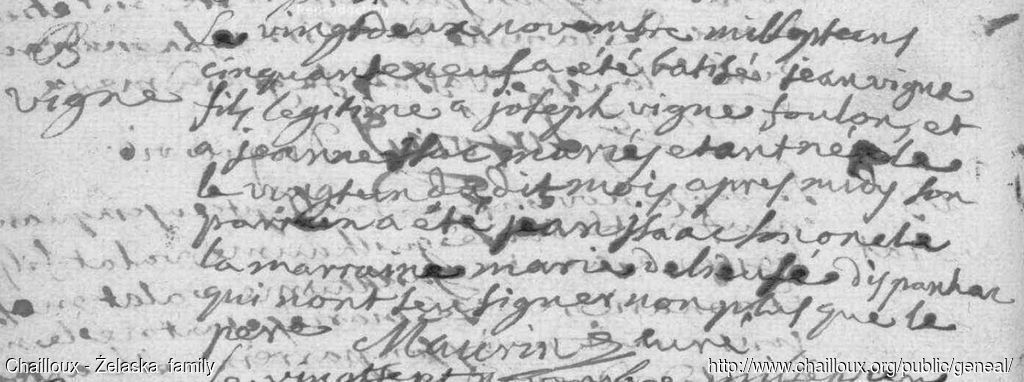 B
vigne
Le vingtdeux novembre milleptcens
cinquanteneuf a été batisé jean vigne
fils legitime a joseph vigne foulons et
a jeanne Isac mariés etant né le
le vingtun du dit mois apres midy son
parrin a été jean Isaac son oncle
la marraine marie
qui n'ont seu signer non plus que le
pere Maurin curé
Chailloux - Żelaska family
http://www.chailloux.org/public/geneal/